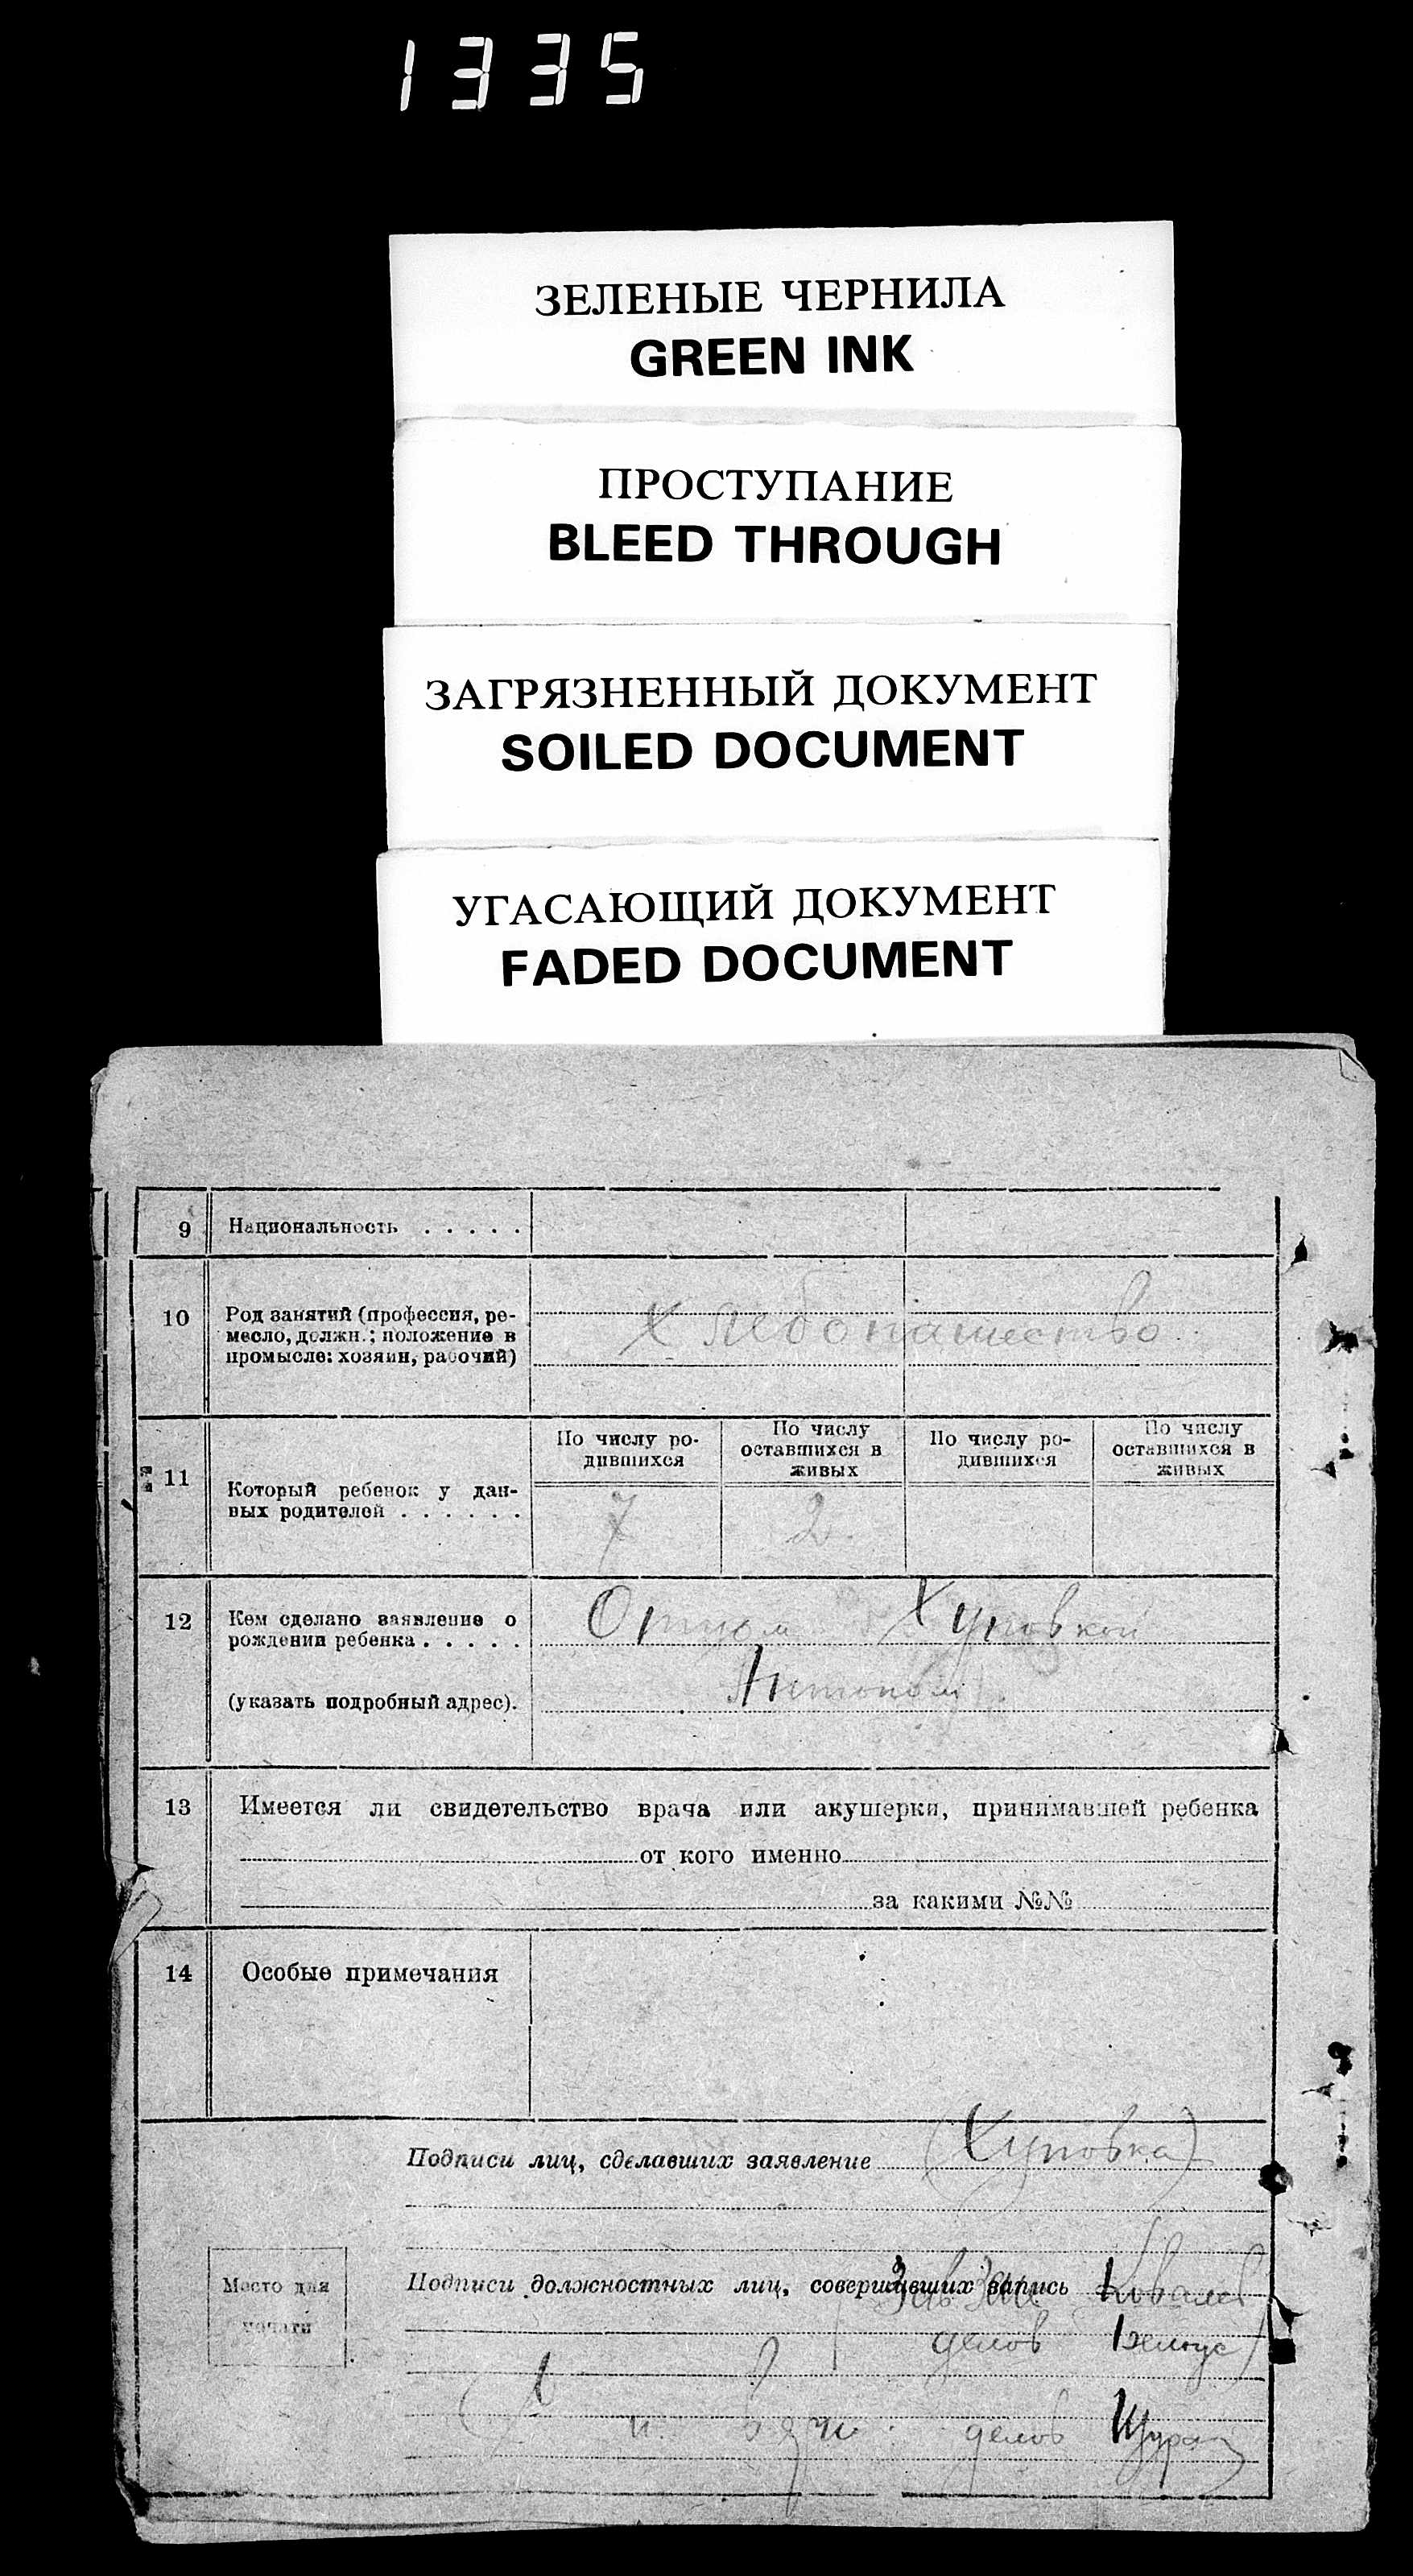 1335
ЗЕЛЕНЫЕ ЧЕРНИЛА
GREEN INK
ПРОСТУПАНИЕ
BLEED THROUGH
ЗАГРЯЗНЕННЫЙ ДОКУМЕНТ
SOILED DOCUMENT
УГАСАЮЩИЙ ДОКУМЕНТ
FADED DOCUMENT
9 Национальность . . . . .
10 Род занятий (профессия, ре-
месло, должн.: положение в
промысле: хозяин, рабочий)
Хлебопашество
11 Который ребенок у дан-
ных родителей . . . . . .
По числу ро-
дившихся
По числу
оставшихся в
живых
По числу ро-
дившихся
По числу
оставшихся в
живых
7 2
12 Кем сделано заявление о
рождении ребенка . . . . .
(указать подробный адрес).
Отцом Хуповкой
Антоном
13 Имеется ли свидетельство врача или акушерки, принимавшей ребенка
от кого именно
за какими №№
14 Особые примечания
Подписи лиц, сделавших заявление (Хуповка)
Место для
печати
Подписи должностных лиц, совершивших запись Ковалев
делов
делов Щура